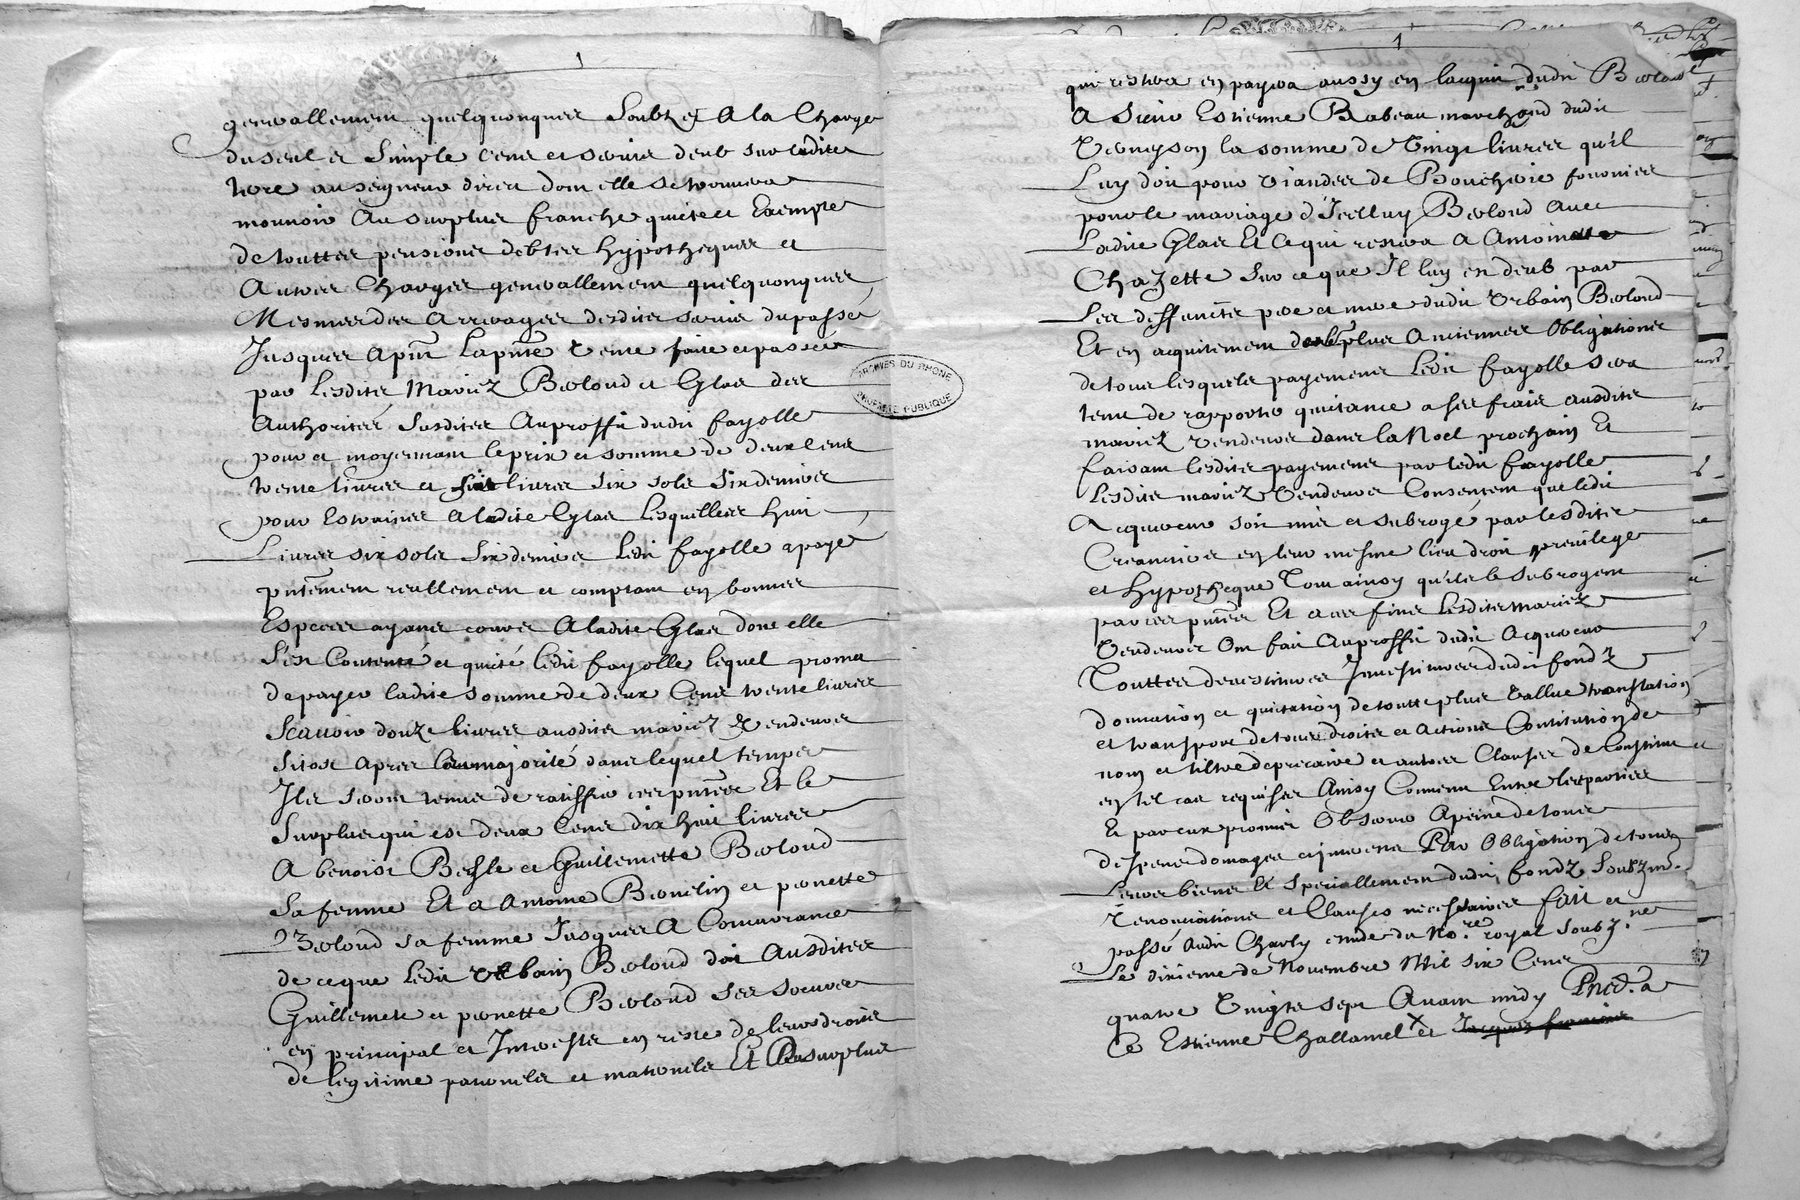 1
generallement quelquonques Soubz et A la Charge
du seul et Simple Cens et servis deub sur ladite
terre au seigneur direct dont elle se trouvera
mouvoir Au surplus franche quitte et Exempte
de touttes pensions debtes hypotheques et
Autres Charges generallement quelquonques
Mesmes des Arrerages desdits servis du passé
Jusques a pnt La pnte Vente faite et passée
par Lesdits Mariez Berloud et Glas des
Authorités Susdites Au proffit dudit fayolle
pour et moyennant le prix et somme de deux Cens
trente livres et huit livres six sols six deniers
pour Estraines A ladite Glas Lesquelles huit
Livres six sols six deniers Ledit fayolle a payé
pntement reallement et comptant en bonnes
Especes ayans cours A ladite Glas dont elle
s'est Contenté et quité ledit fayolle lequel promet
de payer ladite somme de deux Cens trente livres
Scavoir douze livres ausdits mariez Vendeurs
sitost Apres leur majorité dans lequel temps
Ils seront tenus de ratiffier ces pntes Et le
Surplus qui est deux Cens dix huit livres
A benoist Besle et Guillemette Berloud
Sa femme Et a Antoine Bonelin et pernette
Berloud sa femme Jusques A Concurance
de ce que Ledit Urbain Berloud doit Ausdites
Guillemette et pernette Berloud Ses soeurs
en principal et Interests en reste de leurs droits
de legitime paternels et maternels Et Le surplus
ARCHIVES DU RHONE
PROPRIÉTÉ PUBLIQUE
1
qui restera en payera aussy en lacquit dudit Berloud
A Sieur Estienne Rabeau marchand dudit
Verneyson la somme de Vingt livres qu'il
Luy doit pour Viandes de Boucherie fournies
pour le mariage d'Icelluy Berloud Avec
Ladite Glas Et Ce qui restera A Antoinette
Chazette Sur ce que Il luy en deub par
Les deffuncts pere et mere dudit Urbain Berloud
Et en acquitement de plus Anciennes Obligations
de tous lesquels payemens Ledit fayolle sera
tenu de rapporter quitance a ses frais ausdits
mariez Vendeurs dans la Noel prochain Et
faisant lesdits payemens par ledit fayolle
Lesdits mariez Vendeurs Consentent que ledit
Acquereur soit mis et subrogé par lesdits
Creanciers en leur mesme lieu droit privilege
et hypotheque Tout ainsy qu'ils le subrogent
par ces pntes Et a ces fins Lesdits mariez
Vendeurs Ont fait Au proffit dudit Acquereur
Touttes devestitures Investitures dudit fondz
donnation et quitation de toutte plus Vallue translation
et transport de tous droits et actions Constitution de
nom et tiltre de precaire et autres Clauses de Constitut et
en tel cas requises Ainsy Convenu Entre les parties
Et par eux promis Observer A peine de tous
despens domages et interests Par Obligation de tous
Leurs biens Et Speciallement dudit fondz Soubz mis
Renonciations et Clauses necessaires fait et
passé audit Charly etude du No.re royal soubz.ne
Le dixieme de Novembre Mil six Cens
quatre Vingts sept Avant midy Pnce. a
Ce Estienne Challamel et Jacques